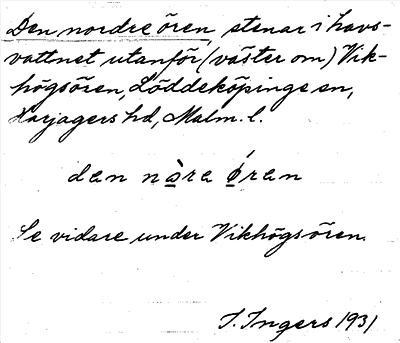 Den nordre ören, stenar i havs-
vattnet utanför (väster om) Vik-
högsören, Löddeköpinge sn,
Harjagers hd, Malm. l.
den nὰra ǿran
Se vidare under Vikhögsören.
I. Ingers 1931